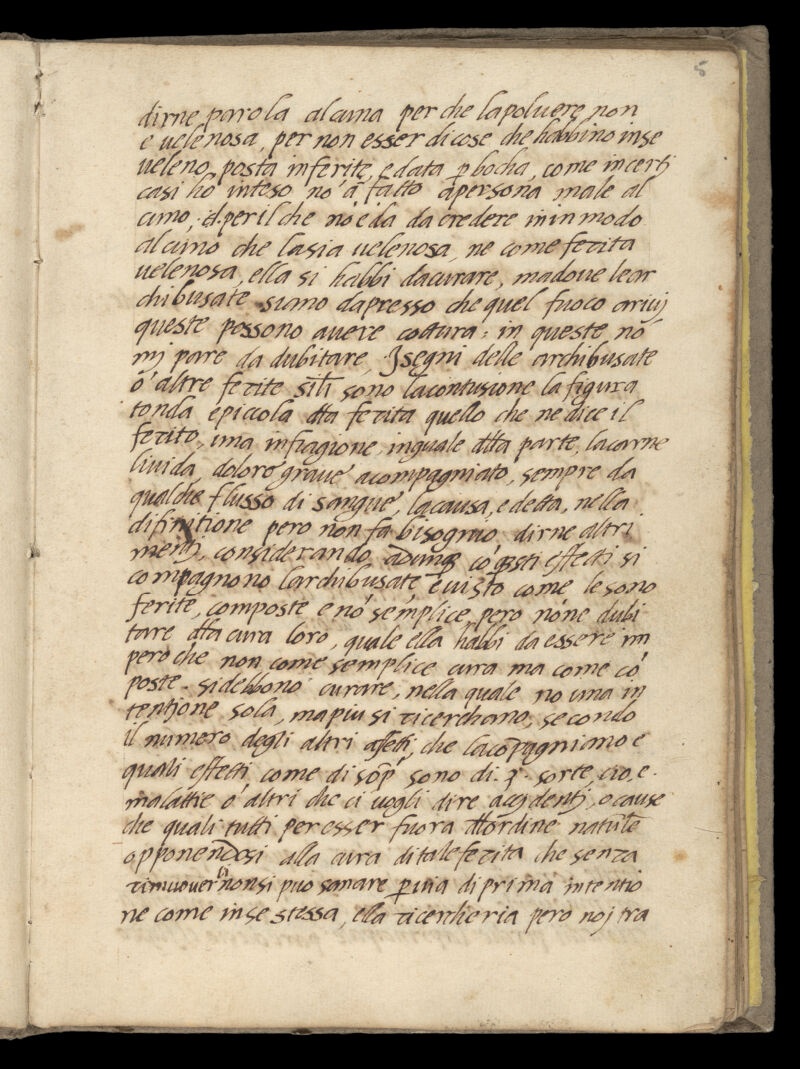 5
dirne parola alcuna perche lapoluere non
e uelenosa, per non esser di cose che habbino inse
ueleno, posta inferite, e data p bocha, come in certi
casi hó inteso nó á fatto apersona male al
cuno, perilche nó é da da credere in in modo
alcuno che lasia uelenosa, ne come ferita
uelenosa, ella si habbi dacurare, madoue lear
chibusate siano dapresso che quel fuoco arriuj
queste possono auere cottura, in queste nó
mj pare da dubitare, Jsegni delle archibusate
o' altre ferite sili sono lacontusione la figura
tonda epiccola dlla ferita quello che ne dice il
ferito, una infiagione inguale dlla parte, lacarne
liuida dolore graue acompagniato, sempre da
qualche flusso di sangue, lacausa, e detta, nella
difinitione pero non fa bisognio dirne altri
mentj, considerando adunq có qsti effetti si
compagnono larchibusate, e uisto come le sono
ferite, composte e nó semplice, pero nóne dubi
tare dlla cura loro, quale ella habbi da essere im
peroche non come semplice cura ma come có
poste. sidebbono curare, nella quale no una in
tentione sola, ma piu si ricerchano, secondo
il numero degli altri affetti, che lacópagniamo e
quali effetti come di sop sono di. 3. sorte, cio, e.
malattie o' altri che ci uogli dire accidentj, o cause
che quali tutti per esser fuora dllordine naturle
opponendosi alla cura ditale ferita che senza
rimuouer nonsi puo sanare p uia di prima intentio
ne come inse stessa, ella ricercheria pero noj tra